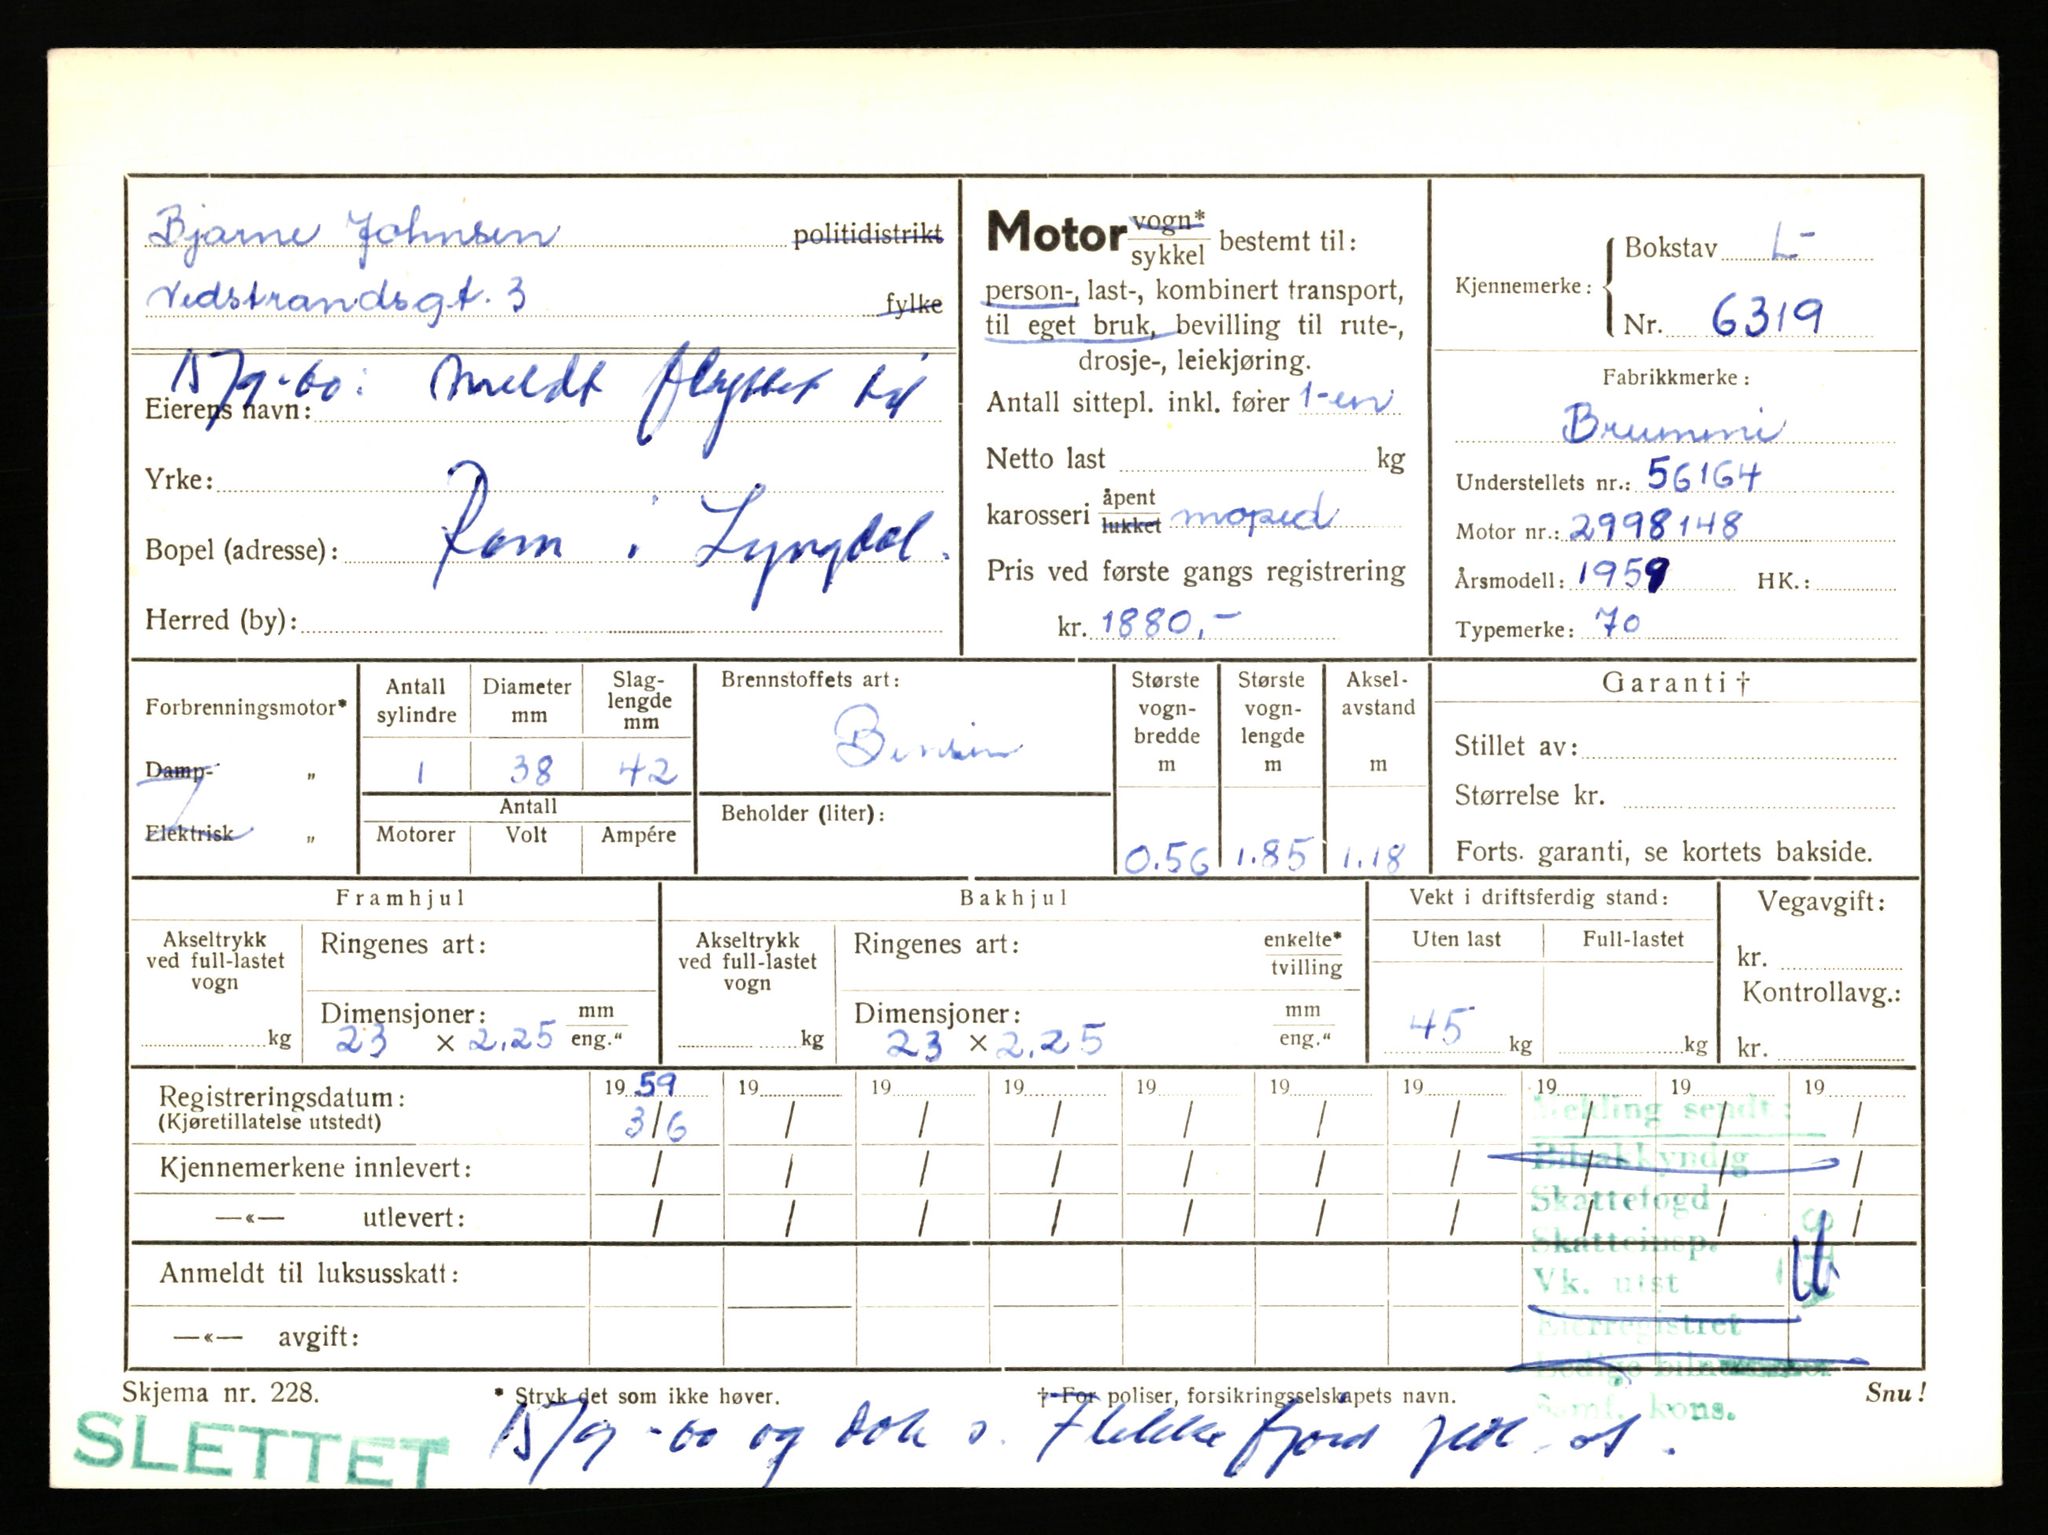 Bjarne Johnsen politidistrikt
Vedstrandsgt. 3 fylke
15/9-60: Meldt flyttet til
Eierens navn:
Yrke:
Rom i Lyngdal.
Bopel (adresse):
Herred (by):
Motor vogn*/sykkel bestemt til:
person-, last-, kombinert transport,
til eget bruk, bevilling til rute-,
drosje-, leiekjøring.
Antall sittepl. inkl. fører 1-en
Netto last kg
karosseri åpent/lukket moped
Pris ved første gangs registrering
kr. 1880,-
Kjennemerke: Bokstav L-
Nr. 6319
Fabrikkmerke:
Brummi
Understellets nr.: 56164
Motor nr.: 2998148
Årsmodell: 1959 HK.:
Typemerke: 70
Forbrenningsmotor*
Damp- „
Elektrisk „
Antall sylindre
1
Diameter mm
38
Slag-lengde mm
42
Antall
Motorer Volt Ampére
Brennstoffets art:
Bensin
Beholder (liter):
Største vogn-bredde m
0.56
Største vogn-lengde m
1.85
Aksel-avstand m
1.18
Garanti †
Stillet av:
Størrelse kr.
Forts. garanti, se kortets bakside.
Framhjul
Akseltrykk ved full-lastet vogn
kg
Ringenes art:
Dimensjoner: mm/eng."
23 × 2.25
Bakhjul
Akseltrykk ved full-lastet vogn
kg
Ringenes art: enkelte*/tvilling
Dimensjoner: mm/eng."
23 × 2.25
Vekt i driftsferdig stand:
Uten last Full-lastet
45 kg kg
Vegavgift:
kr.
Kontrollavg.:
kr.
Registreringsdatum: 19 59 19 19 19 19 19 19 19 19 19
(Kjøretillatelse utstedt) 3/6 / / / / / / / / /
Kjennemerkene innlevert: / / / / / / / / / /
—«— utlevert: / / / / / / / / / /
Anmeldt til luksusskatt:
—«— avgift:
Melding sendt:
Bilsakkyndig
Skattefogd
Skatteinsp.
Vk. utst
Eierregistret
Ledige bilnummer
Samf. kons.
Skjema nr. 228.
* Stryk det som ikke høver.
† For poliser, forsikringsselskapets navn.
Snu!
SLETTET
15/9-60 og dok s. Flekkefjord